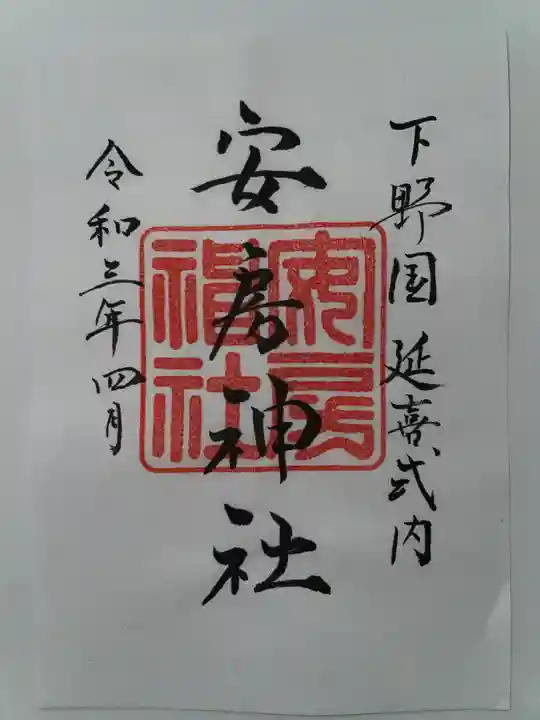 下野国 延喜式内
安房神社
安房神社
令和三年四月